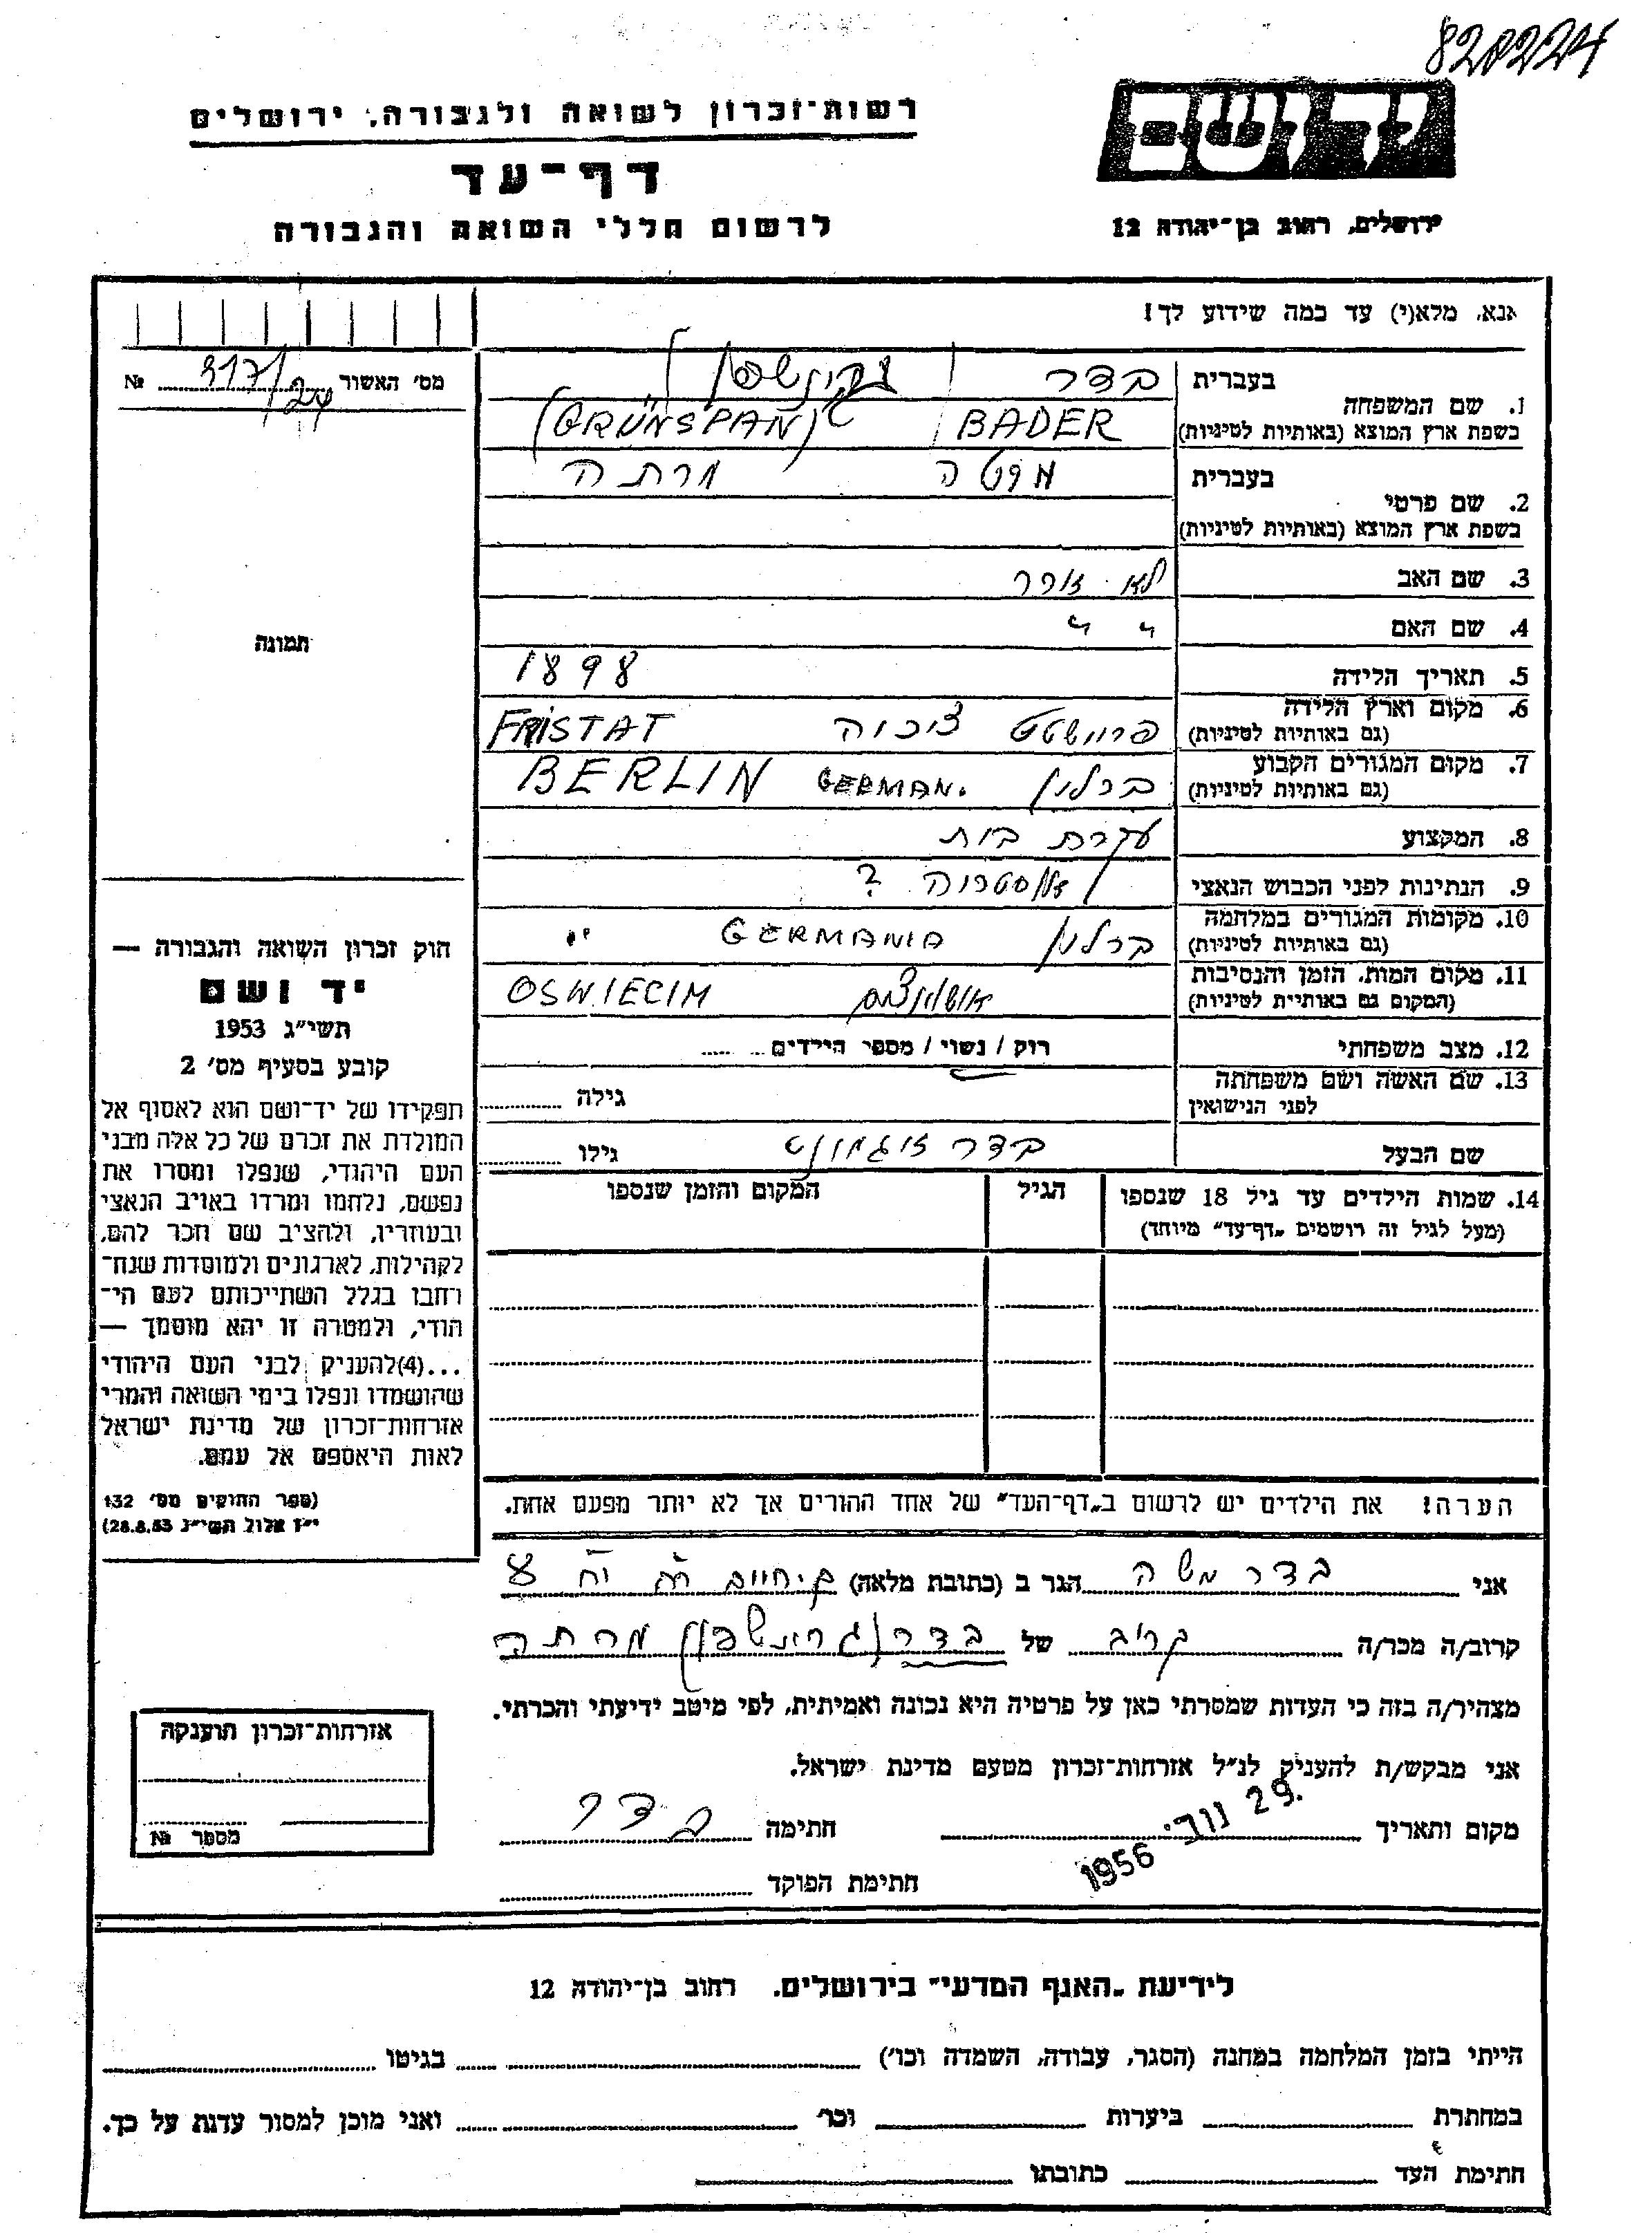 8202224
רשות־זכרון לשואה ולגבורה, ירושלים
יד ושם
דף־עד
לרשום חללי השואה והגבורה
ירושלים, רחוב בן־יהודה 12
אנא, מלא(י) עד כמה שידוע לך!
מס' האשור 917/24 №
1. שם המשפחה
בעברית בדר
בשפת ארץ המוצא (באותיות לטיניות) BADER (GRÜNSPAN)
2. שם פרטי
בעברית מרתה
בשפת ארץ המוצא (באותיות לטיניות)
3. שם האב לא זוכר
4. שם האם " "
5. תאריך הלידה 1898
6. מקום וארץ הלידה
(גם באותיות לטיניות) פריישטט צ'כיה FRISTAT
7. מקום המגורים הקבוע
(גם באותיות לטיניות) ברלין GERMAN. BERLIN
8. המקצוע עקרת בית
9. הנתינות לפני הכבוש הנאצי אוסטריה ?
10. מקומות המגורים במלחמה
(גם באותיות לטיניות) ברלין GERMANIA "
11. מקום המות, הזמן והנסיבות
(המקום גם באותיות לטיניות) OSWIECIM
12. מצב משפחתי רוק / נשוי / מספר הילדים
13. שם האשה ושם משפחתה
לפני הנישואין גילה
שם הבעל בדר זיגמונט גילו
14. שמות הילדים עד גיל 18 שנספו
(מעל לגיל זה רושמים „דף־עד" מיוחד)
הגיל
המקום והזמן שנספו
הערה! את הילדים יש לרשום ב„דף־העד" של אחד ההורים אך לא יותר מפעם אחת.
תמונה
חוק זכרון השואה והגבורה —
יד ושם
תשי"ג 1953
קובע בסעיף מס' 2
תפקידו של יד־ושם הוא לאסוף אל
המולדת את זכרם של כל אלה מבני
העם היהודי, שנפלו ומסרו את
נפשם, נלחמו ומרדו באויב הנאצי
ובעוזריו, ולהציב שם וזכר להם,
לקהילות, לארגונים ולמוסדות שנח־
רבו בגלל השתייכותם לעם הי־
הודי, ולמטרה זו יהא מוסמך —
...(4)להעניק לבני העם היהודי
שהושמדו ונפלו בימי השואה והמרי
אזרחות־זכרון של מדינת ישראל
לאות היאספם אל עמם.
(ספר החוקים מס' 132
י"ז אלול תשי"ג 28.8.53)
אני בדר משה הגר ב (כתובת מלאה) ק. חיים
קרוב/ה מכר/ה קרוב של בדר (גרינשפן) מרתה
מצהיר/ה בזה כי העדות שמסרתי כאן על פרטיה היא נכונה ואמיתית, לפי מיטב ידיעתי והכרתי.
אני מבקש/ת להעניק לנ"ל אזרחות־זכרון מטעם מדינת ישראל.
מקום ותאריך 29. נוב' 1956 חתימה בדר
חתימת הפוקד
אזרחות־זכרון תוענקה
מספר №
לידיעת „האגף המדעי" בירושלים. רחוב בן־יהודה 12
הייתי בזמן המלחמה במחנה (הסגר, עבודה, השמדה וכו') בגיטו
במחתרת ביערות וכו' ואני מוכן למסור עדות על כך.
חתימת העד כתובתו